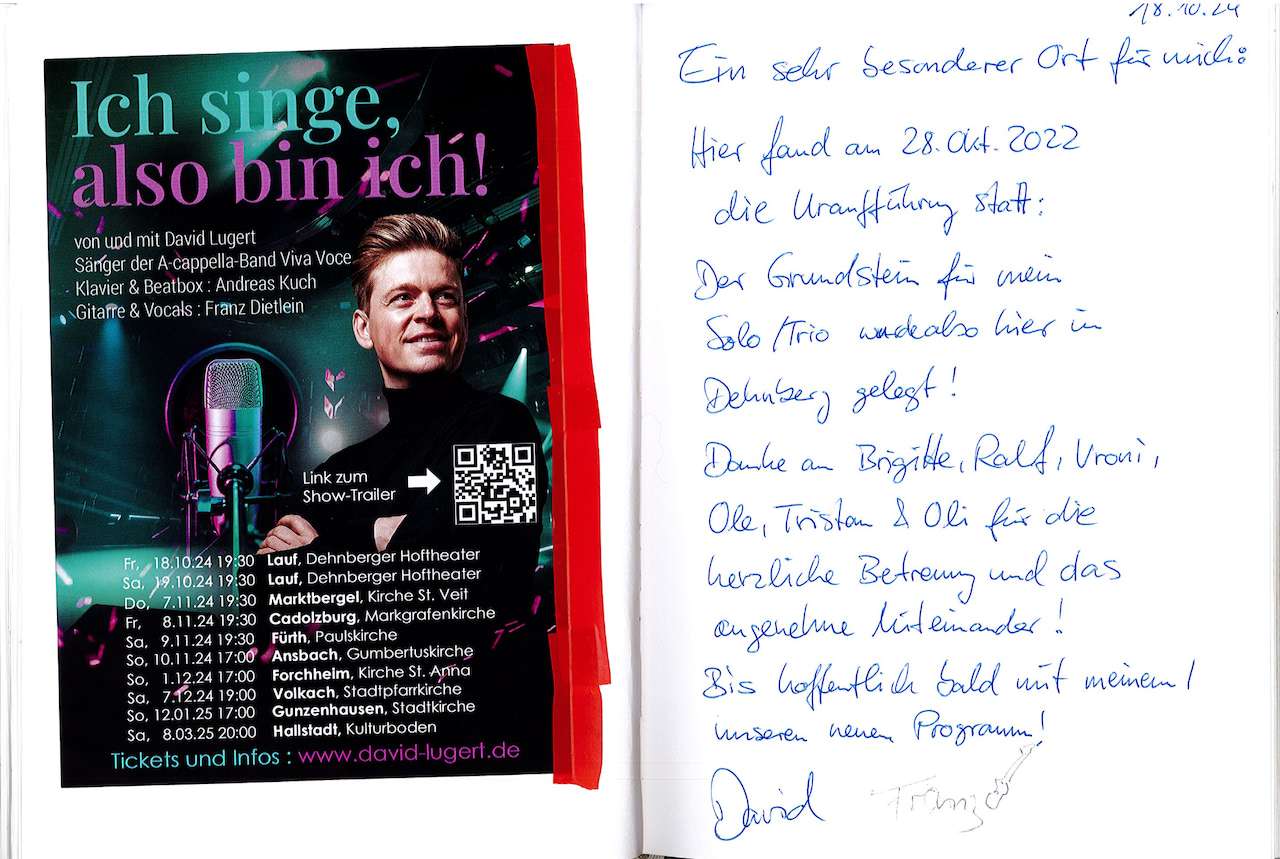 Ich singe,
also bin ich!
von und mit David Lugert
Sänger der A-cappella-Band Viva Voce
Klavier & Beatbox : Andreas Kuch
Gitarre & Vocals : Franz Dietlein
Link zum
Show-Trailer
Fr, 18.10.24 19:30 Lauf, Dehnberger Hoftheater
Sa, 19.10.24 19:30 Lauf, Dehnberger Hoftheater
Do, 7.11.24 19:30 Marktbergel, Kirche St. Veit
Fr, 8.11.24 19:30 Cadolzburg, Markgrafenkirche
Sa, 9.11.24 19:30 Fürth, Paulskirche
So, 10.11.24 17:00 Ansbach, Gumbertuskirche
So, 1.12.24 17:00 Forchheim, Kirche St. Anna
Sa, 7.12.24 19:00 Volkach, Stadtpfarrkirche
So, 12.01.25 17:00 Gunzenhausen, Stadtkirche
Sa, 8.03.25 20:00 Hallstadt, Kulturboden
Tickets und Infos : www.david-lugert.de
18.10.24
Ein sehr besonderer Ort für mich:
Hier fand am 28. Okt. 2022
die Uraufführung statt:
Der Grundstein für mein
Solo/Trio wurde also hier in
Dehnberg gelegt!
Danke an Brigitte, Ralf, Vroni,
Ole, Tristan & Oli für die
herzliche Betreuung und das
angenehme Miteinander!
Bis hoffentlich bald mit meinem/
unseren neuen Programm!
David Franz